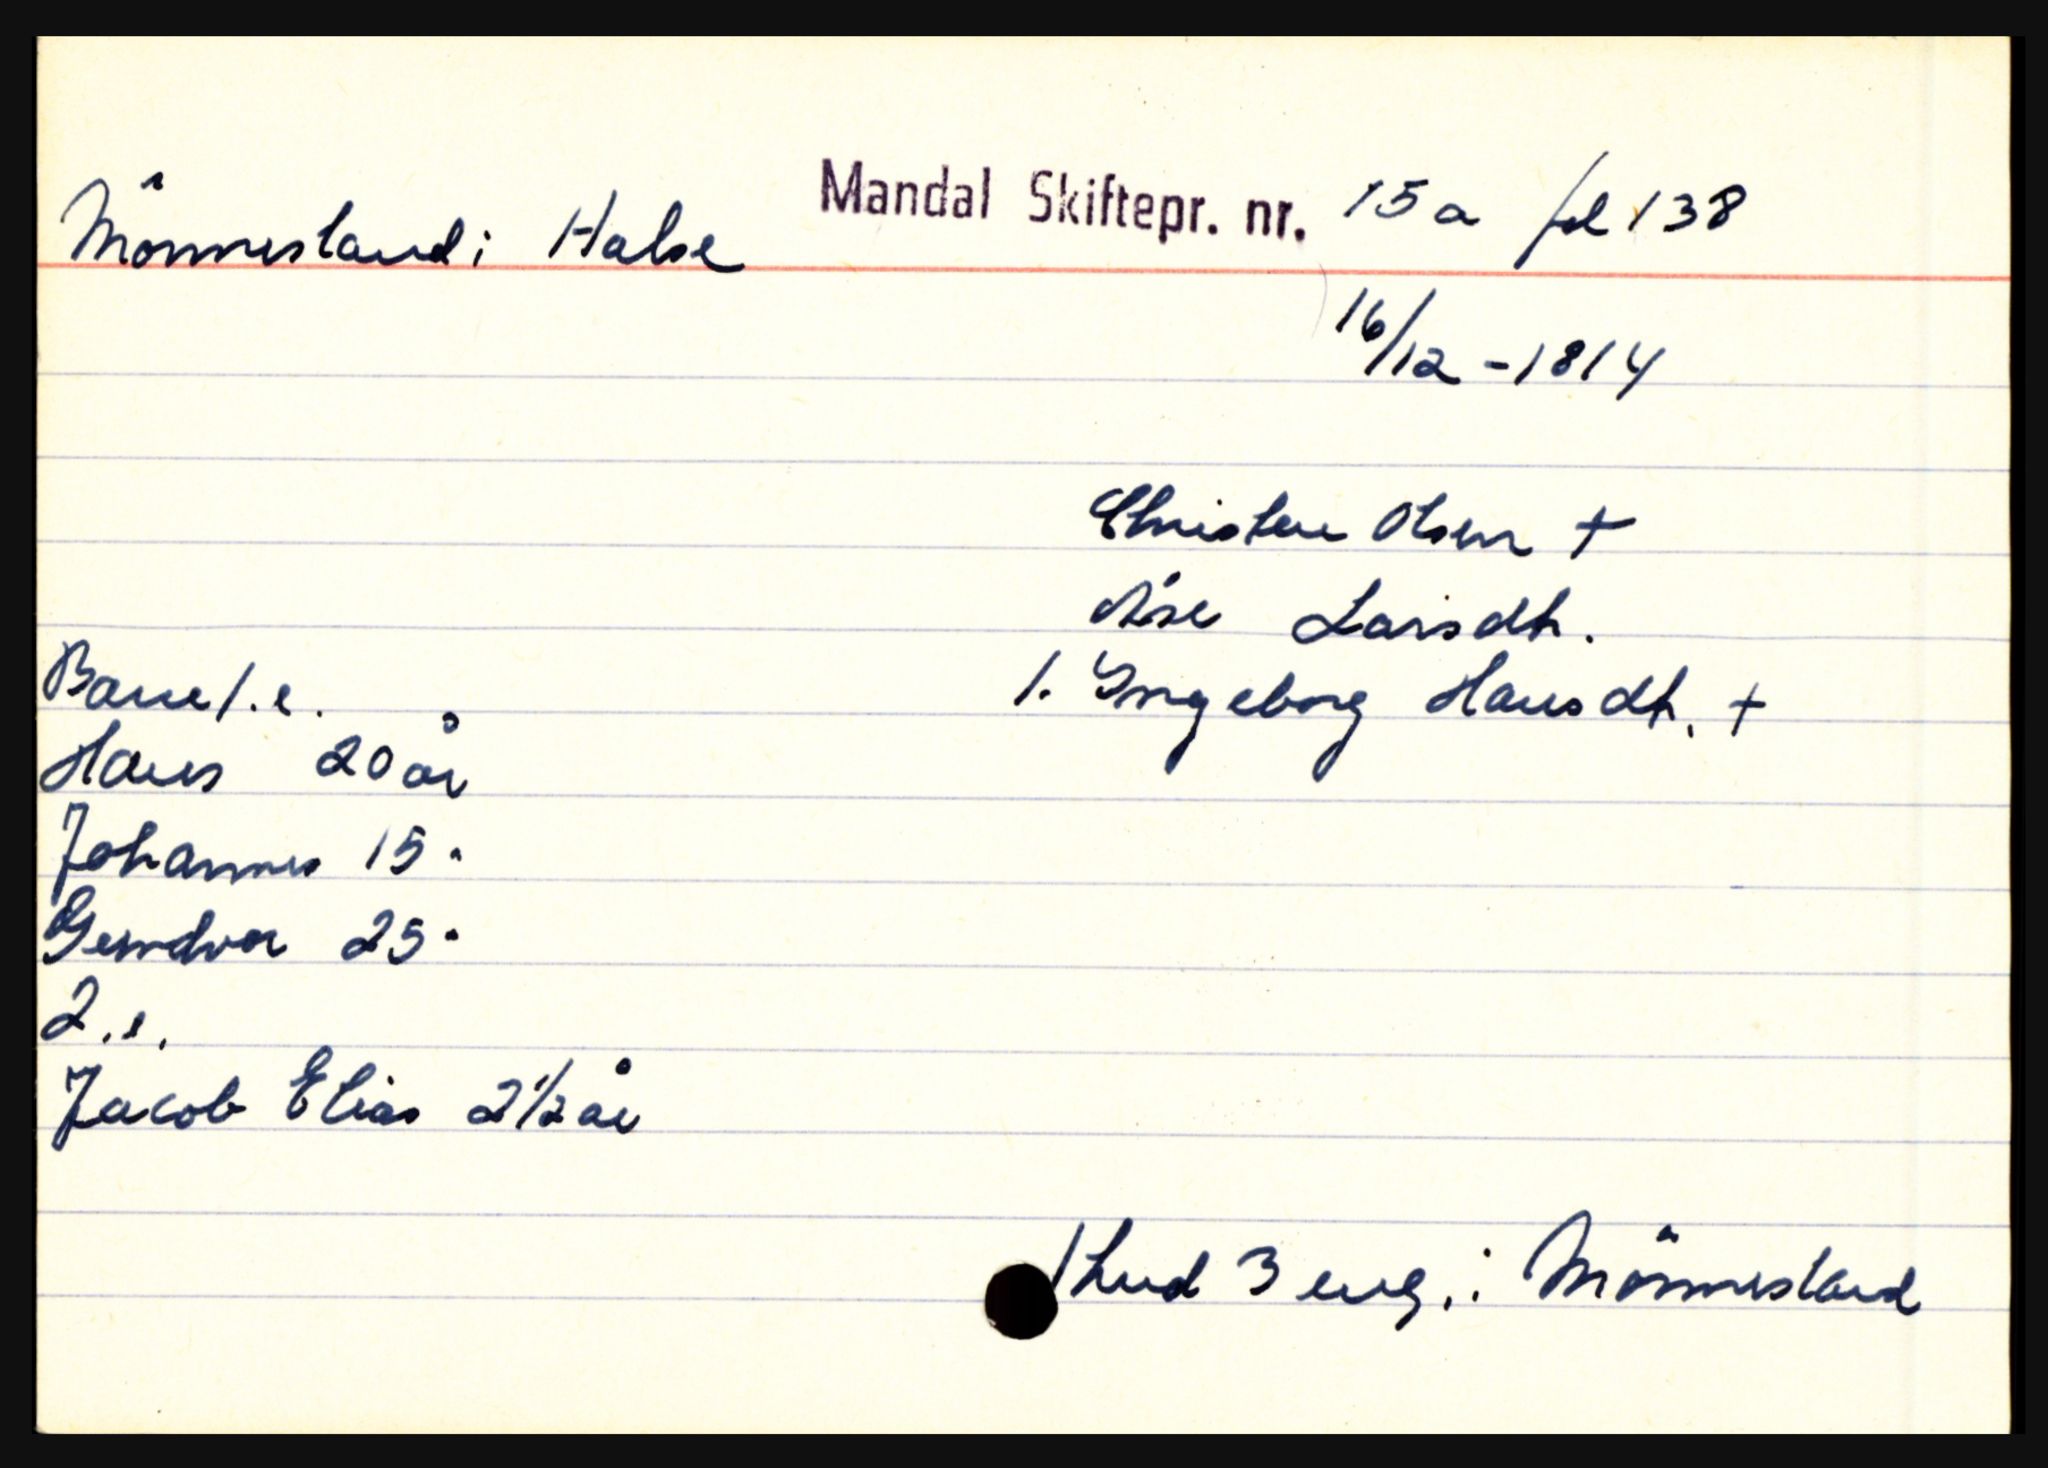 Mönnesland i Halse Mandal Skiftepr. nr. 15a fol 138
16/12 - 1814
Christen Olsen +
Åse Larsdtr.
Barn 1. e. 1. Yngeborg Hansdtr. +
Hans 20 år
Johannes 15 "
Gundvor 25 "
2. e.
Jacob Elias 2 1/2 år
1 hud 3 eng. i Mönnesland